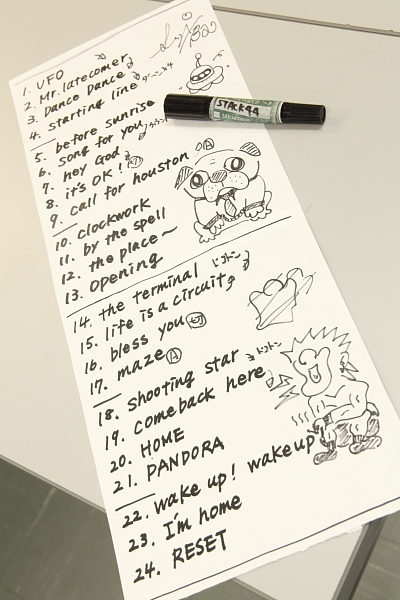 1. UFO
2. Mr. latecomer
3. Dance Dance
4. starting line
STACK44
5. before sunrise
6. song for you
7. hey God
8. it's OK!
9. call for houston
10. clockwork
11. by the spell
12. the place~
13. opening
14. the terminal ドコドン
15. life is a circuit
16. bless you
17. maze Ⓐ
18. shooting star ドコドン
19. comeback here
20. HOME
21. PANDORA
22. wake up! wake up
23. I'm home
24. RESET